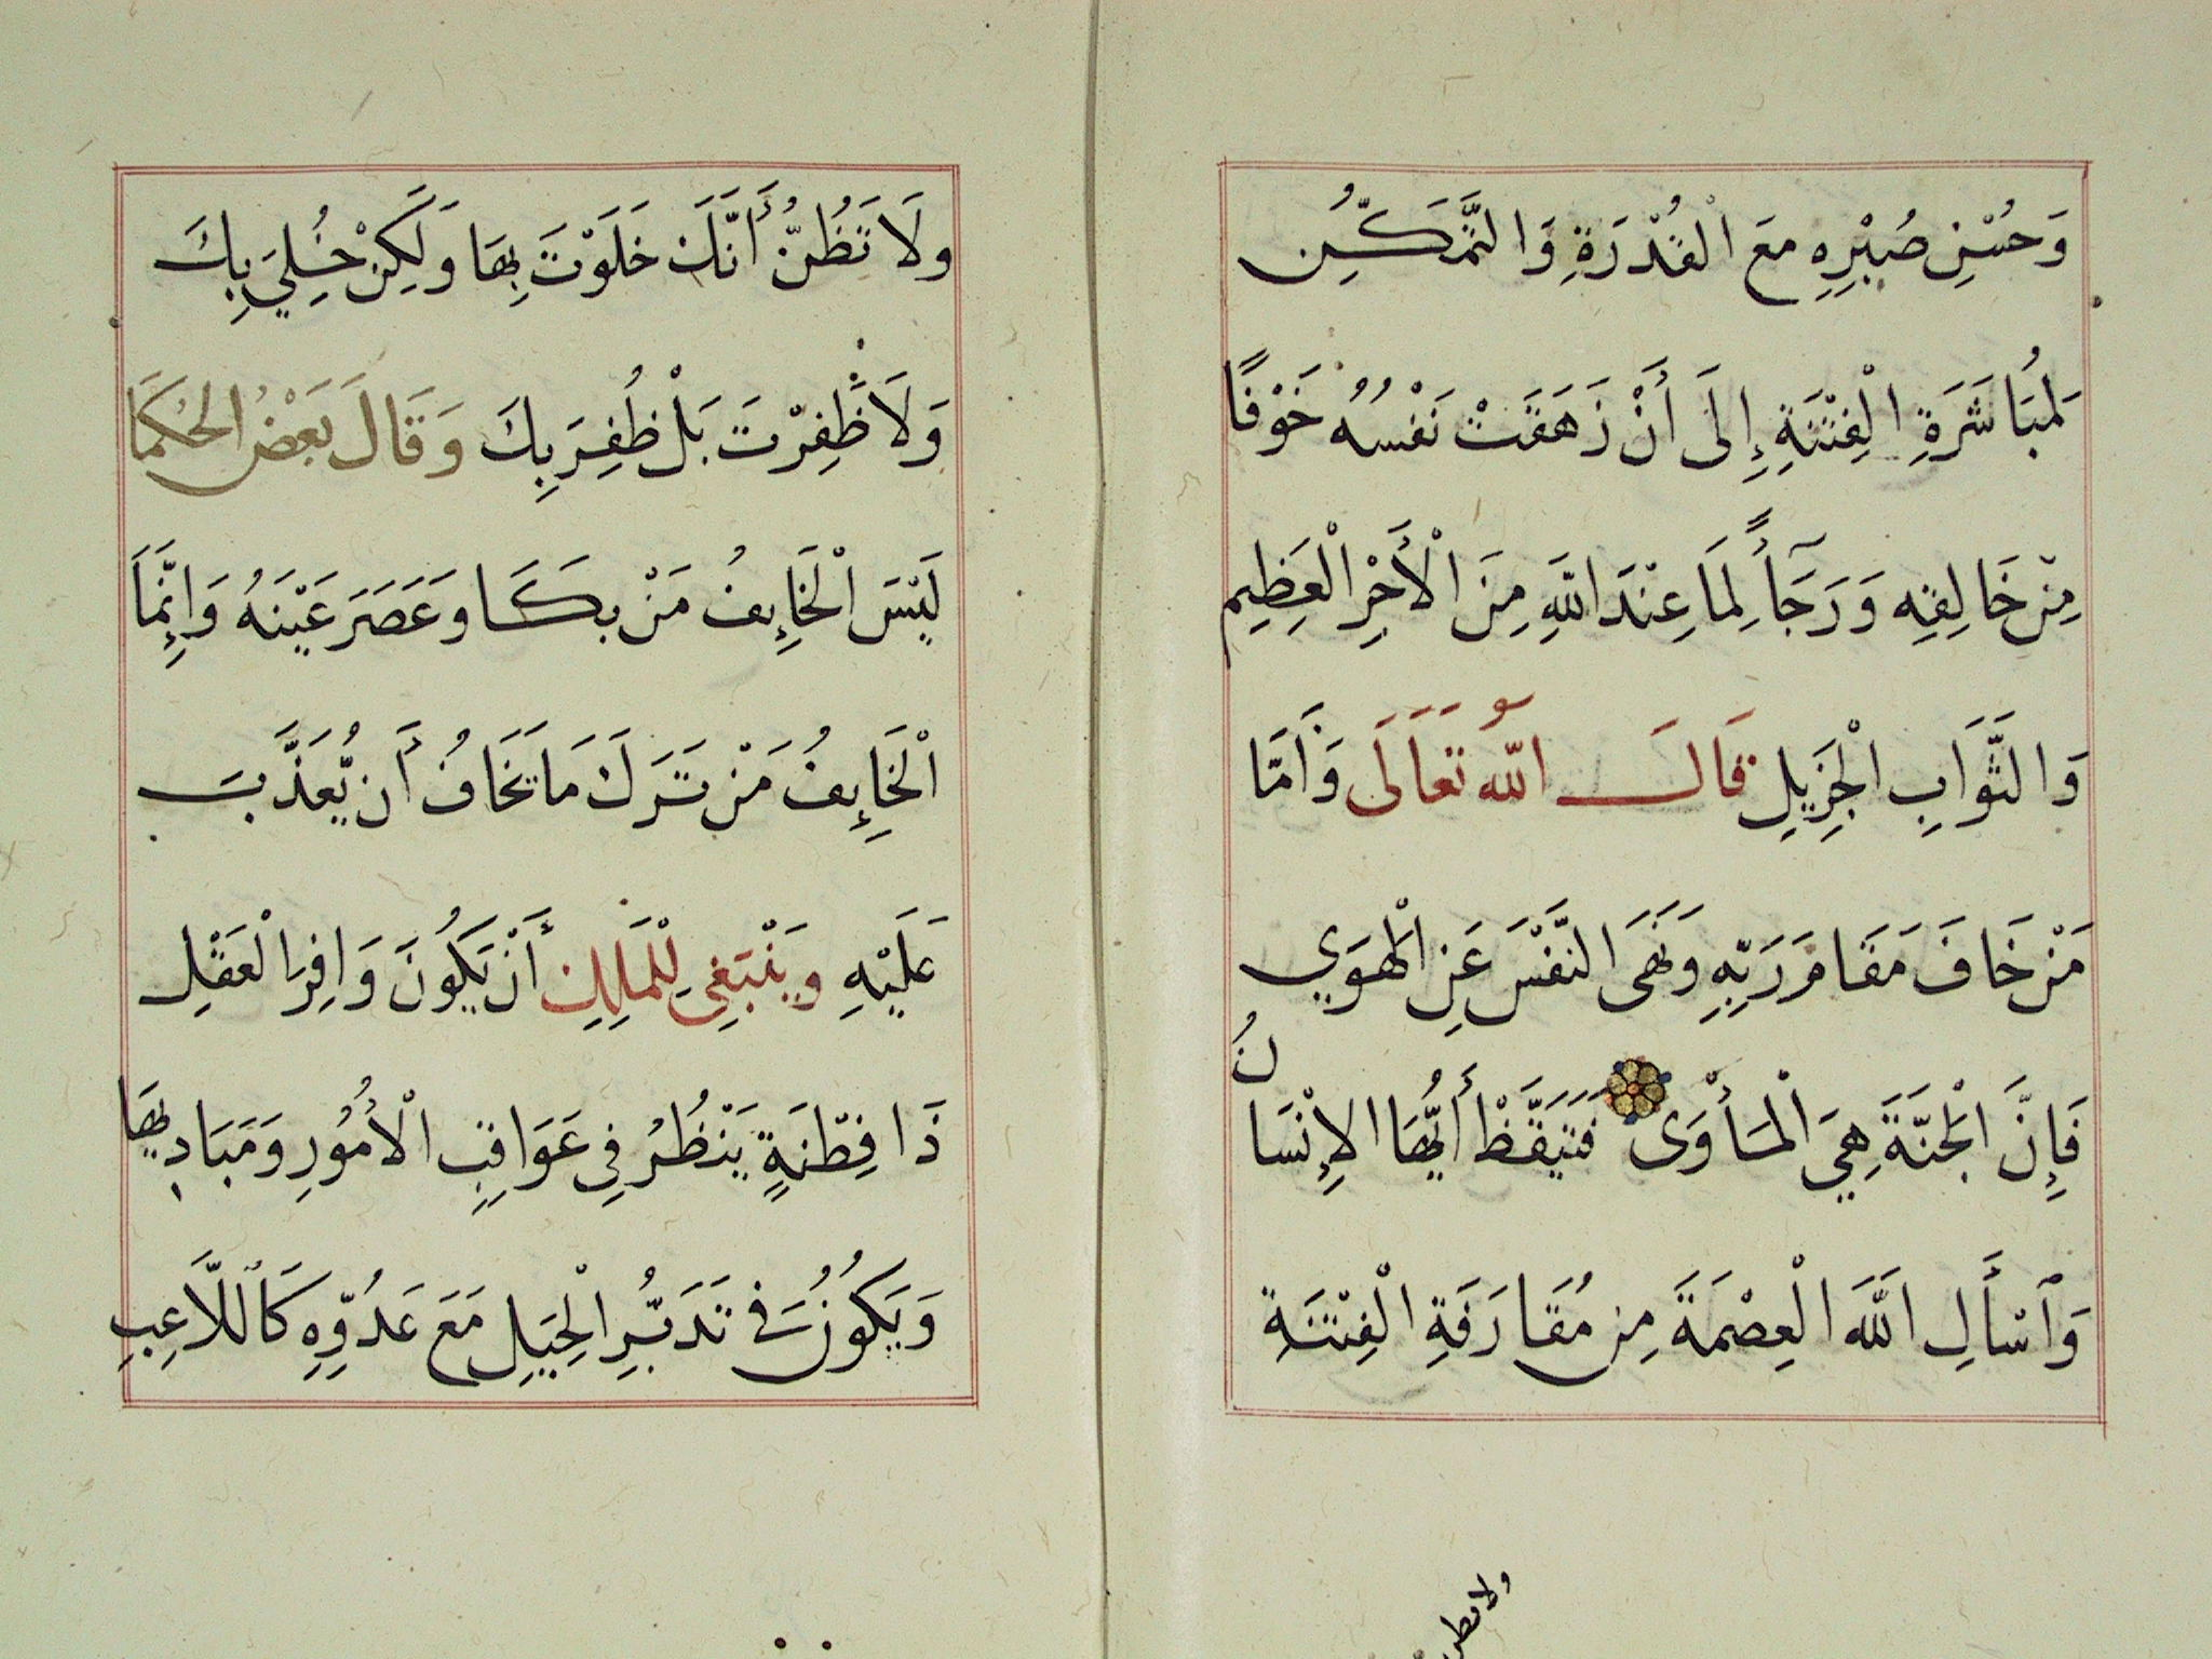 وَحُسْنِ صُبْرِهِ معَ الْقُدْرَةِ وَالتَّمَكُّنِ
لِمُبَاشَرَةِ الْفِتْنَةِ إِلَى أَنْ زَهَقَتْ نَفْسُهُ خَوْفًا
مِنْ خَالِقِهِ وَرَجَآءً لِمَا عِنْدَ اللَّهِ مِنَ الْأَجْرِ الْعَظِيمِ
وَالثَّوَابِ الْجَزِيلِ قَالَ اللّهُ تَعَالَى وَأَمَّا
مَنْ خَافَ مَقَامَ رَبِّهِ وَنَهَى النَّفْسَ عَنِ الْهَوَي
فَإِنَّ الْجَنَّةَ هِيَ الْمَأْوَى فَتَيَقَّظْ أَيُّهَا الإِنْسَانُ
وَٱسْأَلِ اللَّهَ الْعِصْمَةَ مِن مُقَارَفَةِ الْفِتْنَةِ
ولا تظن
ولَا تَظُنُّ أَنَّكَ خَلَوْتَ بِهَا وَلَكِنْ خُلِيَ بِكَ
وَلَا ظَفِرْتَ بَلْ ظُفِرَ بِكَ وَقَالَ بَعْضُ الحُكَمَا
لَيْسَ الْخَايِفُ مَنْ بكَا وعَصَرَ عَيْنَهُ وَإِنَّمَا
الْخَايِفُ مَنْ تَرَكَ مَا يَخَافُ أَن يُّعَذَّبَ
عَلَيْهِ وَيَنْبَغِي لِلْمَلِكِ أَنْ يَكُونَ وَافِرَ الْعَقْلِ
ذَا فِطْنَةٍ يَنْظُرُ فِي عَوَاقِبِ الْأُمُورِ وَمَبَادِيهَا
وَيَكُوُنُ فِي تَدَبُّرِ الْحِيَلِ مَعَ عَدُوِّهِ كَٱللَّاعِبِ